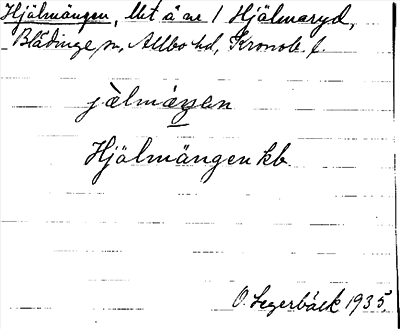 Hjälmängen, lht å ne 1 Hjälmaryd,
Blädinge sn, Allbo hd, Kronob. l.
jælmæŋen
Hjälmängen kb.
O. Segerbäck 1935